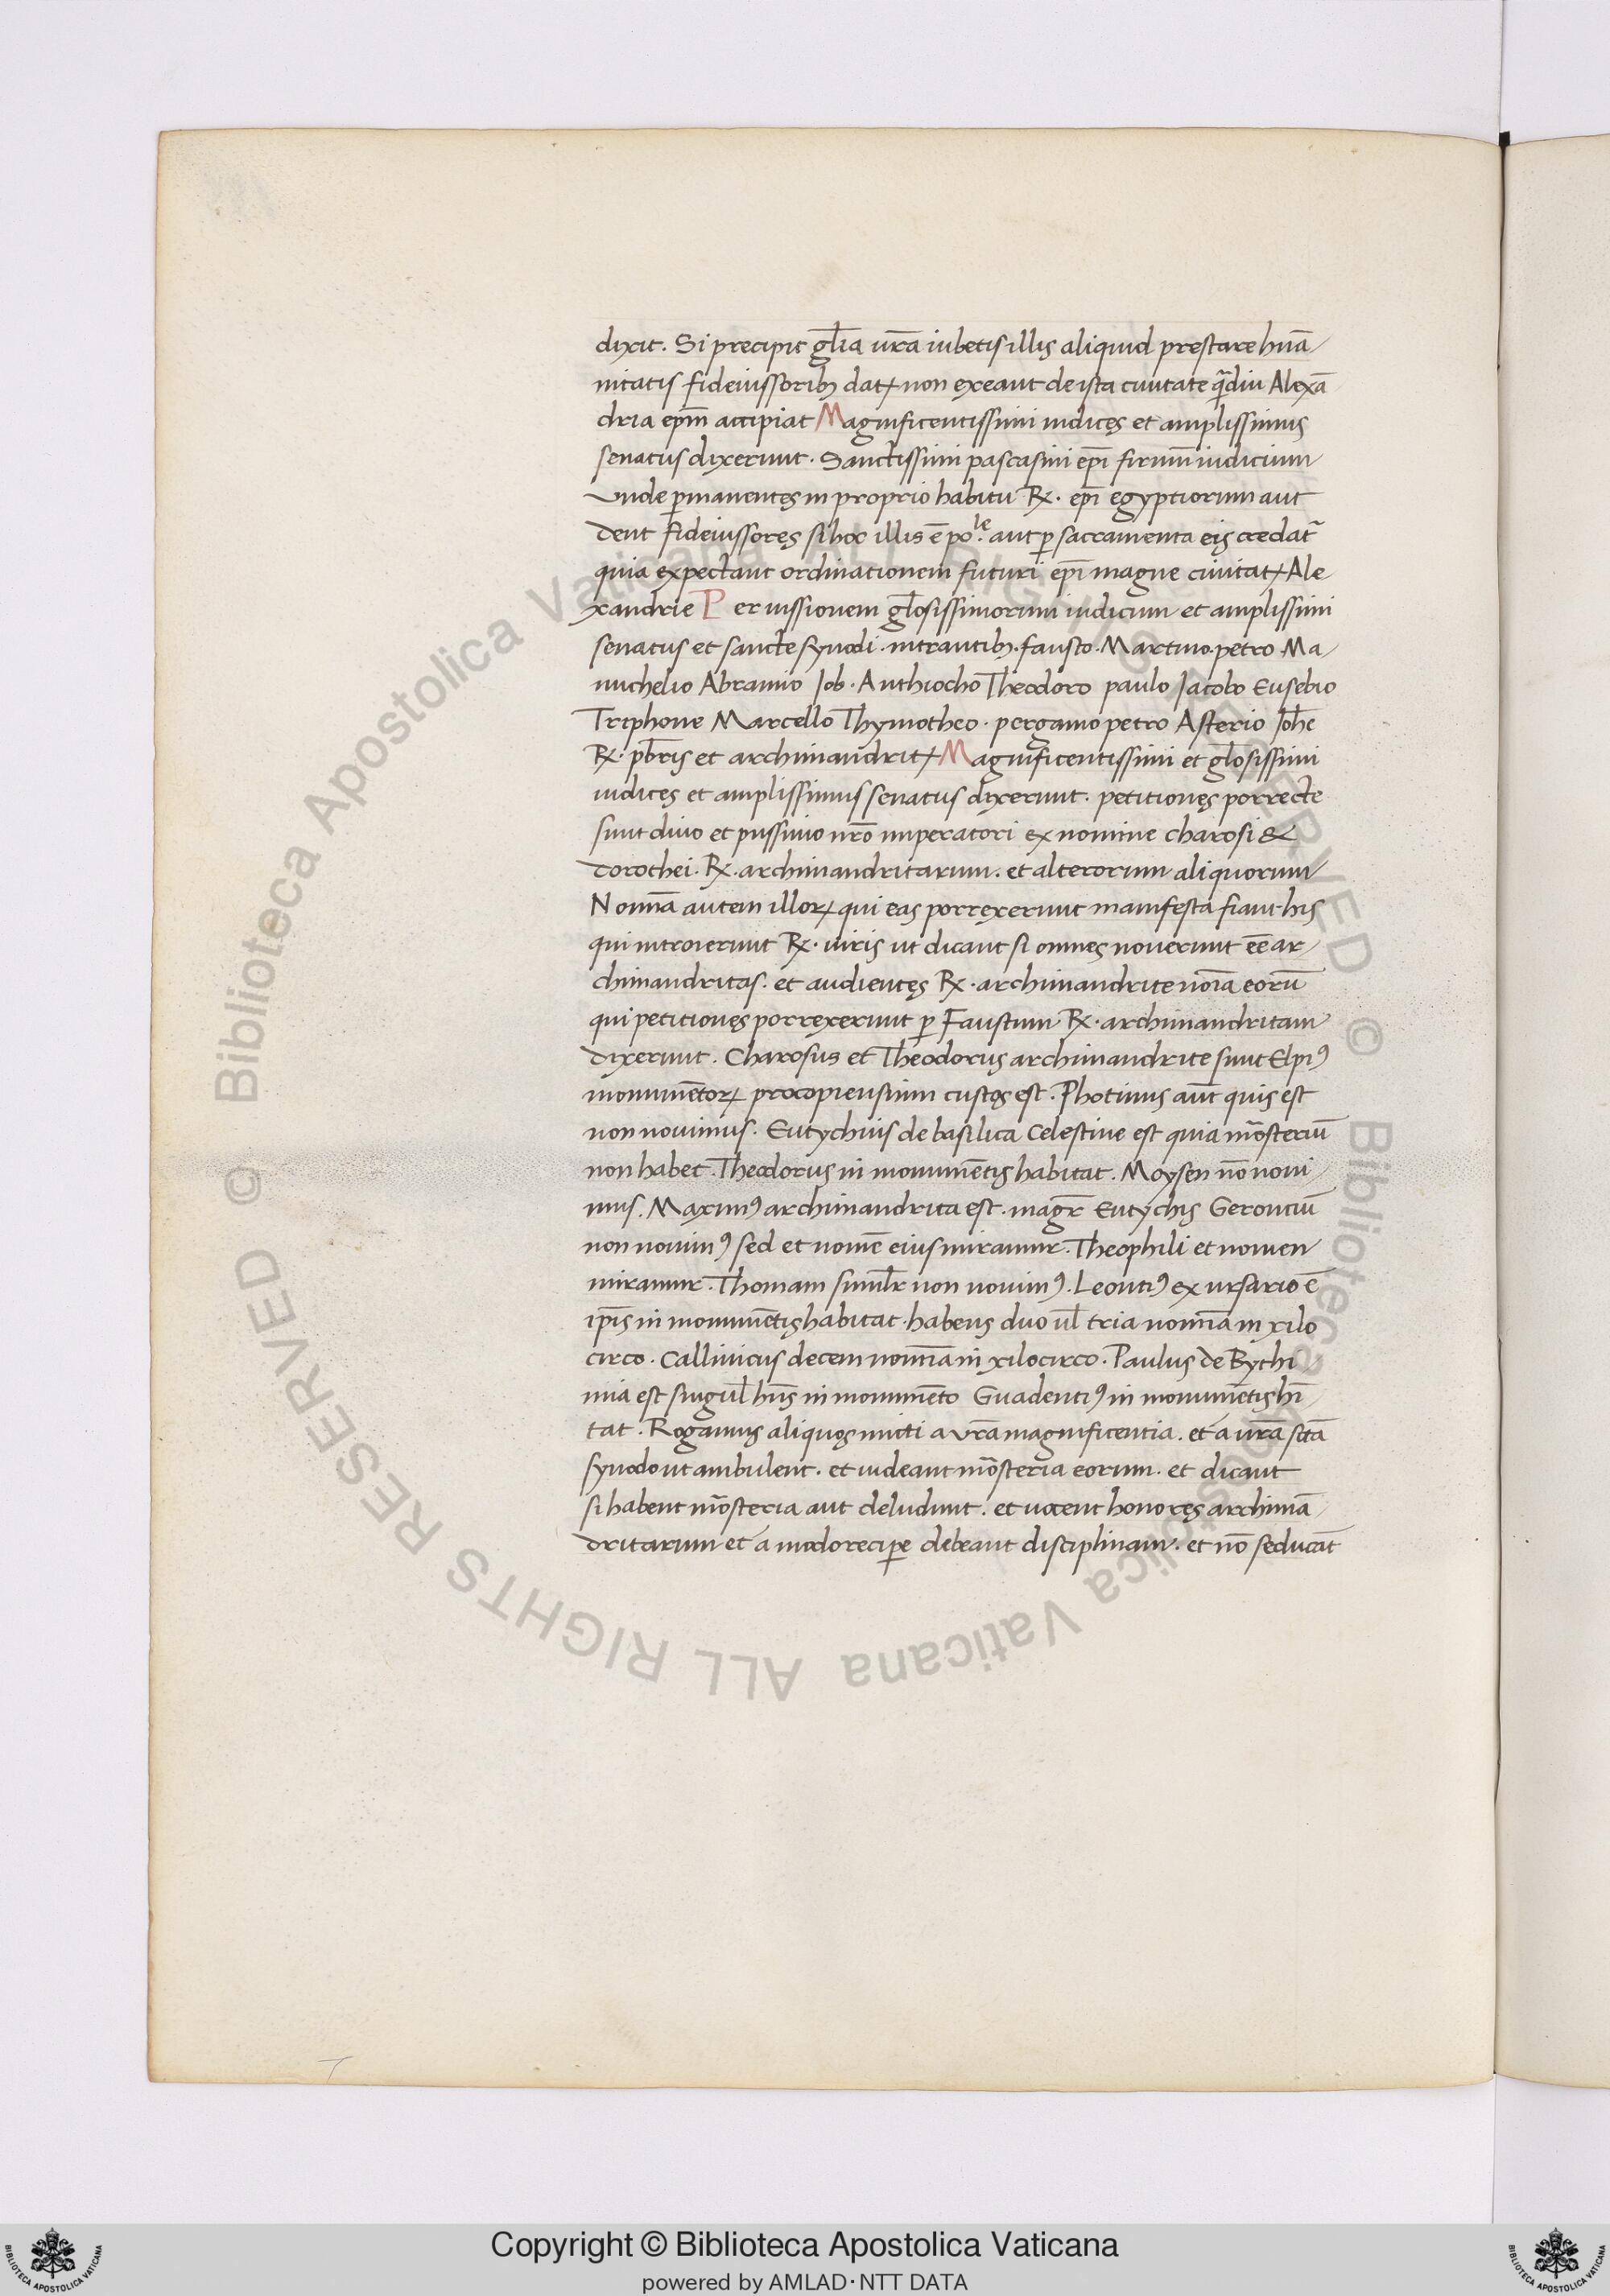 dixit. Si precipit gl̄ia ur̄a iubetis illis aliquid prestare hūa
nitatis fideiussoribꝫ datꝭ non exeant de ista ciuitate q̄diu Alexā
dria ep̄m accipiat Magnificentissimi iudices et amplissimus
senatus dixerunt. Sanctissimi pascasini ep̄i firmū iudicium
vnde ꝑmanentes in proprio habitu ℞. ep̄i egyptiorum aut
dent fideiussores si hoc illis ē po.le aut ꝑ sacramenta eis credat᷑
quia expectant ordinationem futuri ep̄i magne ciuitatꝭ Ale
xandrie Per iussionem gl̄osissimorum iudicum et amplissimi
senatus et sancte synodi. intrantibꝫ. fausto. Martino. petro. Ma
nuchelio Abramio Job. Anthiocho Theodoro paulo Jacobo Eusebio
Triphone Marcello Thymotheo. pergamo petro Asterio Joh̄e
℞. pb̄ris et archimandritꝭ Magnificentissimi et gl̄osissimi
iudices et amplissimus senatus dixerunt. petitiones porrecte
sunt diuo et piissimo nr̄o imperatori ex nomine charosi &
dorothei. ℞. archimandritarum. et alterorum aliquorum
Nomīa autem illorꝝ qui eas porrexerunt manifesta fiant his
qui introierunt ℞. uiris ut dicant si omnes nouerunt eē ar
chimandritas. et audientes ℞. archimandrite noīa eorū
qui petitiones porrexerunt ꝑ Faustum ℞. archimandritam
dixerunt. Charosus et Theodorus archimandrite sunt Elpiꝰ
monumētorꝝ procopiensium custos est. Photinus aūt quis est
non nouimus. Eutychius de basilica Celestine est quia mō̄steriū
non habet. Theodorus in monumētis habitat. Moysen nō noui
mus. Maximꝰ archimandrita est. magr̄ Eutychis Gerontiū
non nouimꝰ sed et nomē eius miramur. Theophili et nomen
miramur. Thomam simil̄r non nouimꝰ. Leontiꝰ ex ursario ē
ip̄is in monumētis habitat. habens duo ul̄ tria nomīa in xilo
circo. Callinicus decem nomīa in xilocirco. Paulus de Bythi
mia est singul̄ hn̄s in monumēto Guadentiꝰ in monumētis hī
tat. Rogamus aliquos mitti a vr̄a magnificentia. et a ur̄a sctā
synodo ut ambulent. et uideant mō̄steria eorum. et dicant
si habent mō̄steria aut deludunt. et uocent honores archimā
dritarum et a modo recipe̲ debeant disciplinam. et nō seducāt
Copyright © Biblioteca Apostolica Vaticana
powered by AMLAD·NTT DATA
© Biblioteca Apostolica Vaticana ALL RIGHTS RESERVED
© Biblioteca Apostolica Vaticana ALL RIGHTS RESERVED
BIBLIOTECA APOSTOLICA VATICANA
BIBLIOTECA APOSTOLICA VATICANA